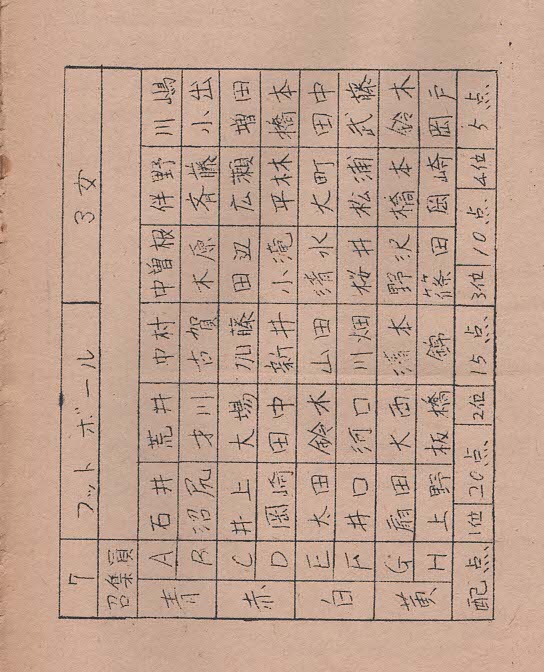 7 フットボール 3女
召集員
青 A 石井 荒井 中村 中曽根 伴野 川嶋
B 沼尻 才川 古賀 木原 斉藤 小出
赤 C 井上 大場 加藤 田丑 広瀬 増田
D 岡崎 田中 新井 小滝 平林 橋本
白 E 太田 鈴木 山田 清水 大町 田中
F 井口 須口 川畑 桜井 松浦 武藤
黄 G 扇田 大西 濱本 野沢 橋本 鈴木
H 上野 板橋 錦 篠田 岡崎 岡戸
配点 1位 20点 2位 15点 3位 10点 4位 5点